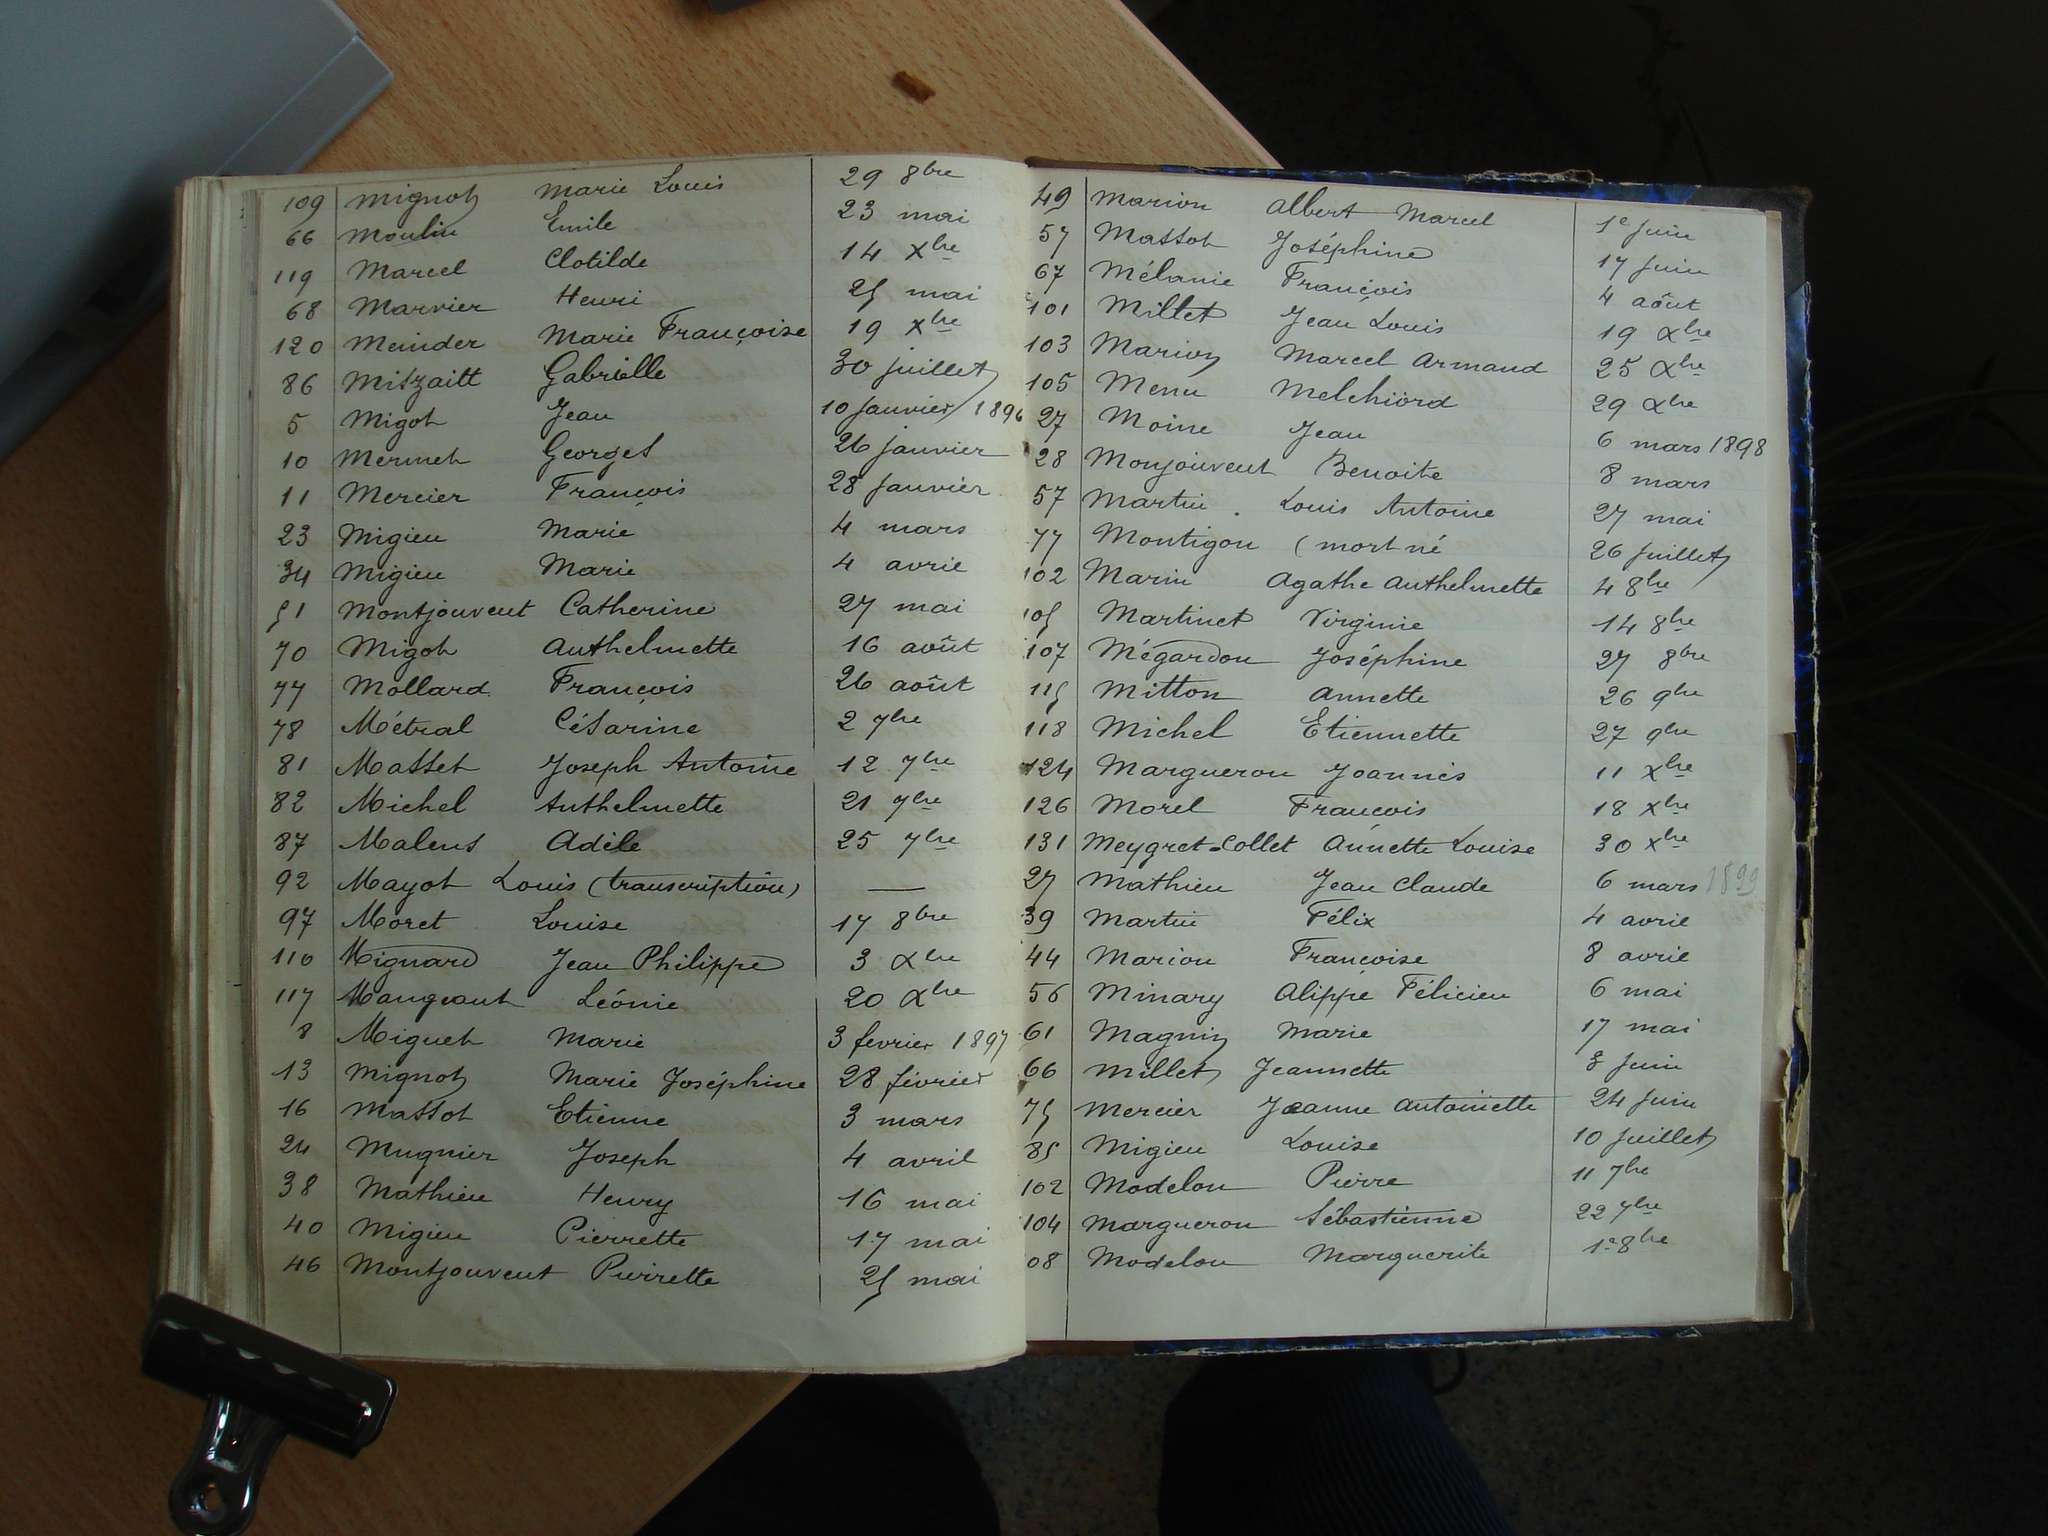 109 Mignot Marie Louis 29 8bre
66 Moulin Emile 23 mai
119 Marcel Clotilde 14 Xbre
68 Marvier Henri 25 mai
120 Meinder Marie Françoise 19 Xbre
86 Mitzaitt Gabrielle 30 juillet
5 Migot Jean 10 janvier 1896
10 Mermet Georges 26 janvier
11 Mercier François 28 janvier
23 Migieu Marie 4 mars
34 Migieu Marie 4 avril
51 Montjouvent Catherine 27 mai
70 Migot Anthelmette 16 août
77 Mollard François 26 août
78 Métral Césarine 2 7bre
81 Masset Joseph Antoine 12 7bre
82 Michel Anthelmette 21 7bre
87 Malens Adèle 25 7bre
92 Mayot Louis (transcription) —
97 Moret Louise 17 8bre
110 Mignard Jean Philippe 3 Xbre
117 Mangeant Léonie 20 Xbre
8 Miguet Marie 3 février 1897
13 Mignot Marie Joséphine 28 février
16 Massot Etienne 3 mars
24 Mugnier Joseph 4 avril
38 Mathieu Henry 16 mai
40 Migieu Pierrette 17 mai
46 Montjouvent Pierrette 25 mai
49 Marion Albert Marcel 1e juin
57 Massot Joséphine 17 juin
67 Mélanie François 4 août
101 Millet Jean Louis 19 Xbre
103 Marion Marcel Armand 25 Xbre
105 Menu Melchiord 29 Xbre
27 Moine Jean 6 mars 1898
28 Monjouvent Benoite 8 mars
57 Martin Louis Antoine 27 mai
77 Montigon (mort né 26 juillet
102 Marin Agathe Anthelmette 4 8bre
105 Martinet Virginie 14 8bre
107 Mégardon Joséphine 27 8bre
115 Mitton Annette 26 9bre
118 Michel Etiennette 27 9bre
124 Margueron Joannès 11 Xbre
126 Morel François 18 Xbre
131 Meygret-Collet Annette Louise 30 Xbre
27 Mathieu Jean Claude 6 mars 1899
39 Martin Félix 4 avril
44 Marion Françoise 8 avril
56 Minary Alippe Félicien 6 mai
61 Magnin Marie 17 mai
66 Millet Jeannette 3 juin
75 Mercier Jeanne Antoinette 24 juin
85 Migieu Louise 10 juillet
102 Modelon Pierre 11 7bre
104 Margueron Sébastienne 22 7bre
08 Modelon Marguerite 1e 8bre